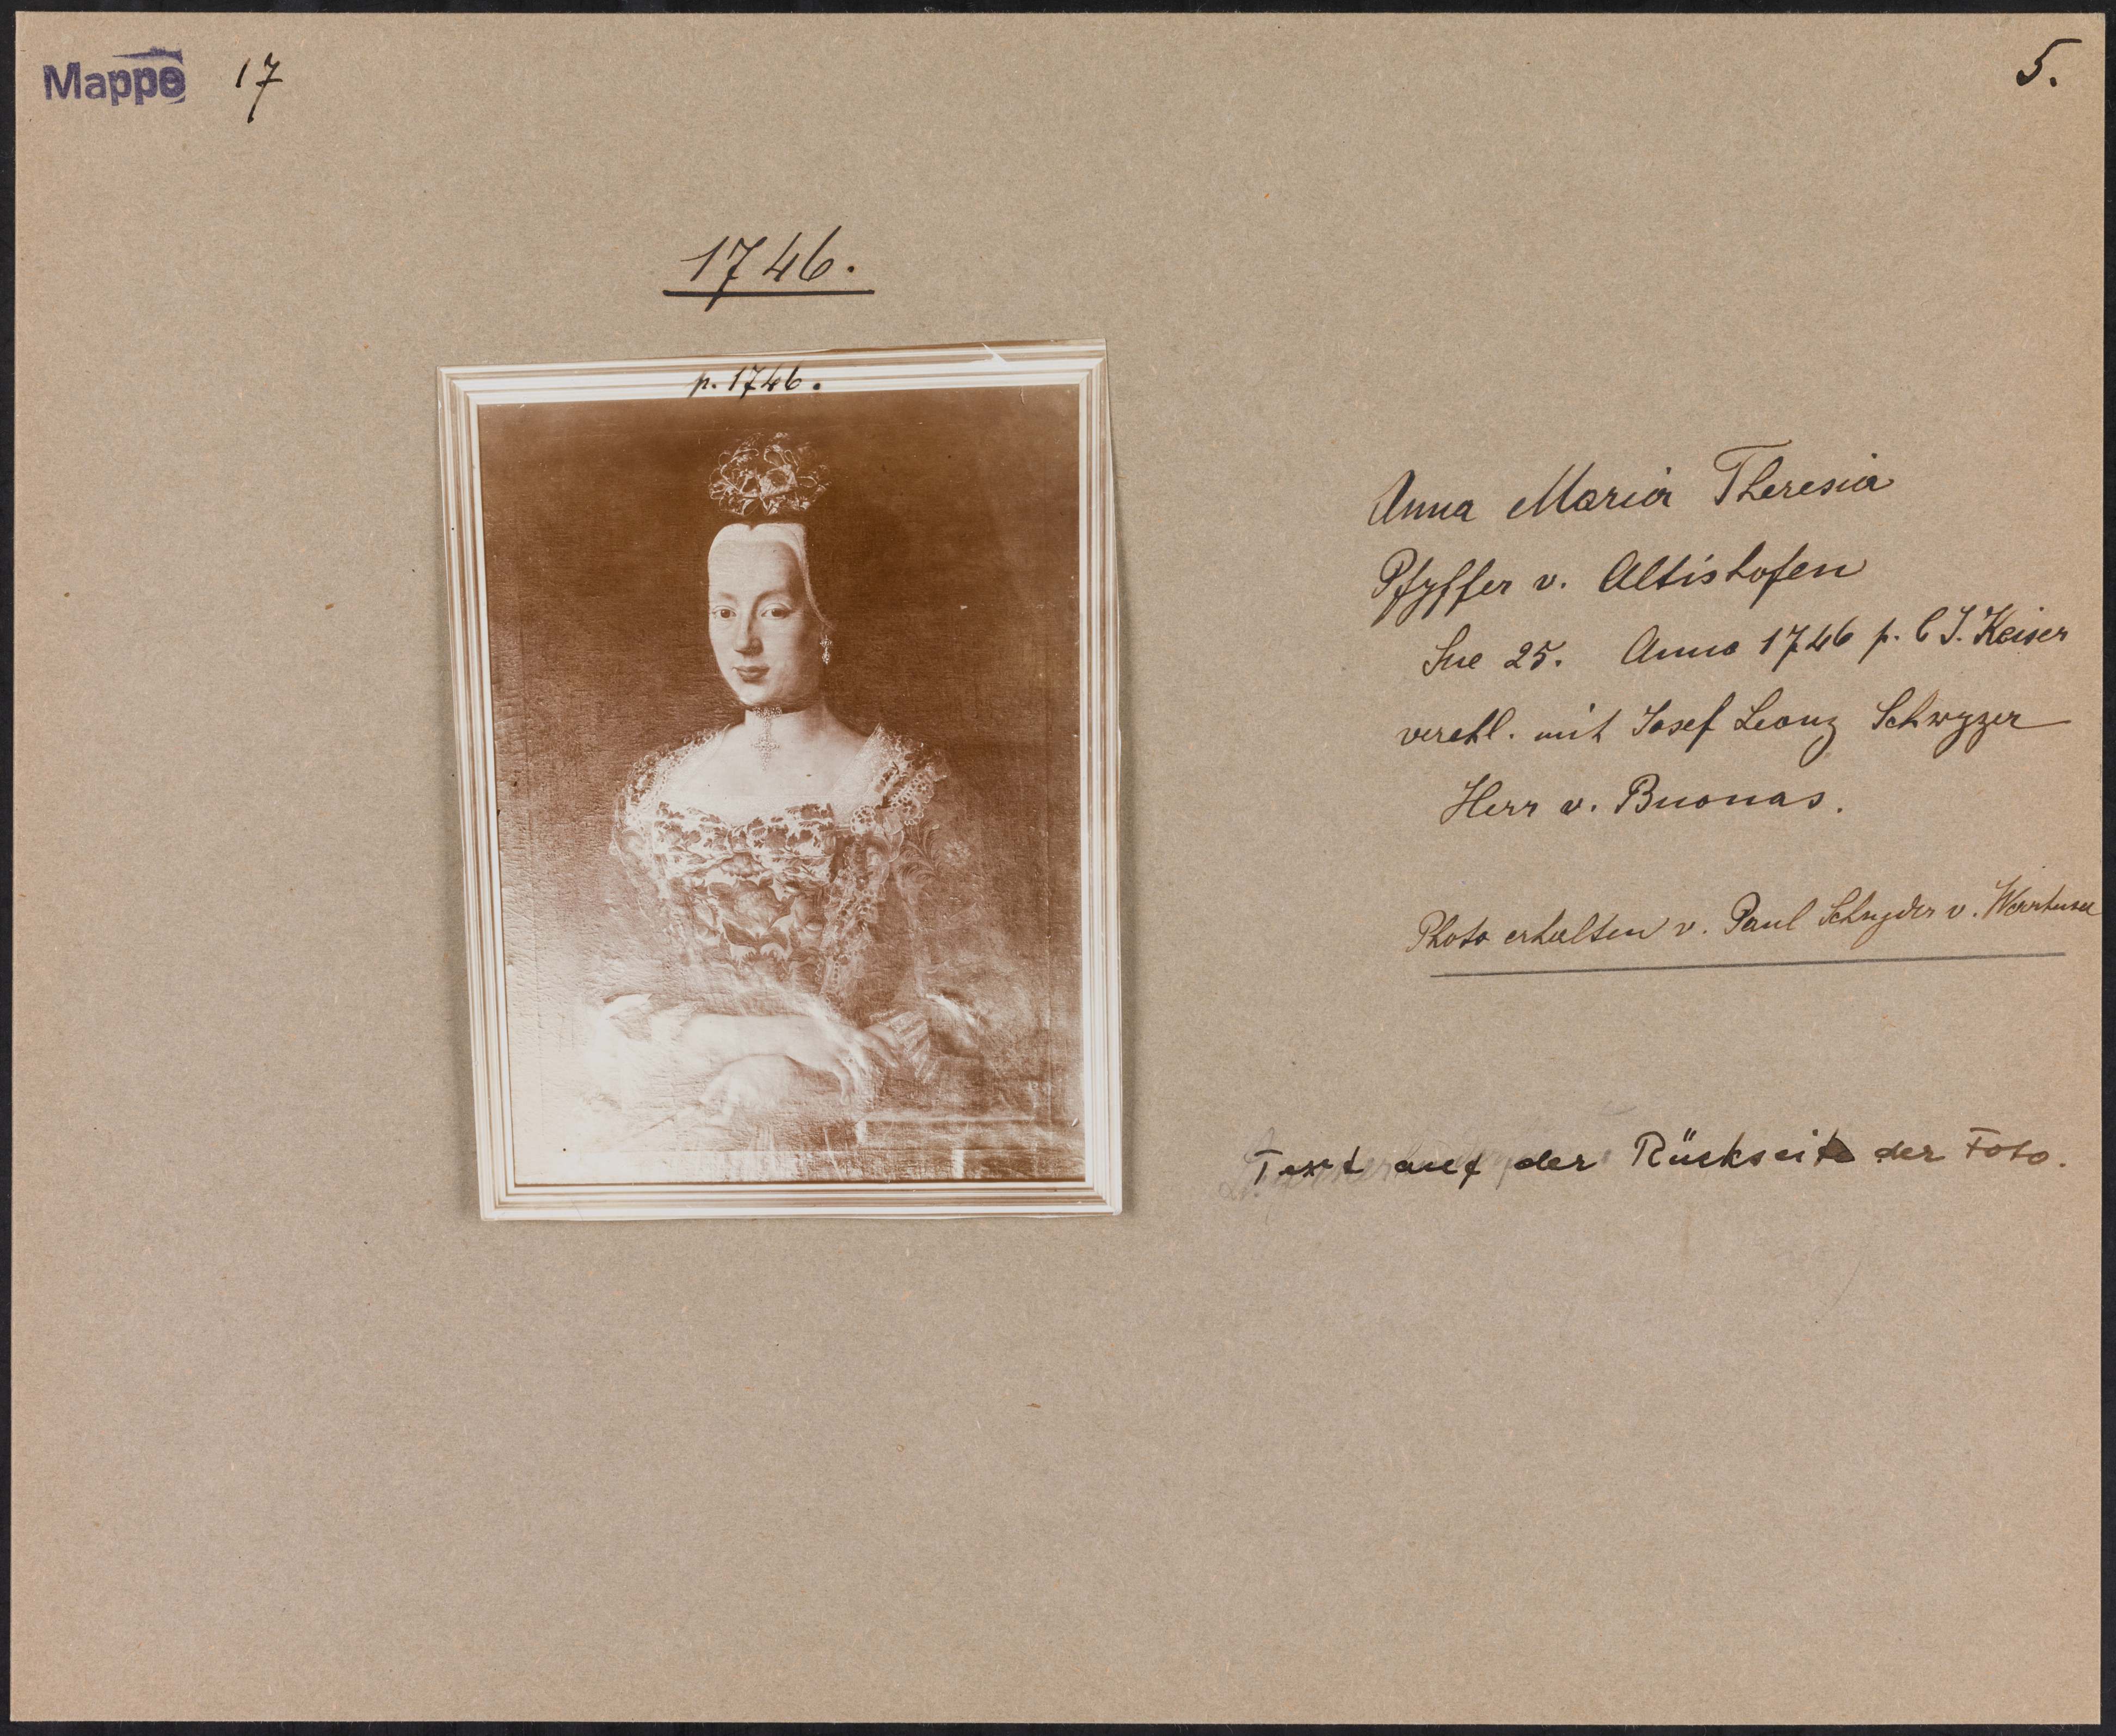 Mappe 17
5.
1746.
p. 1746.
Anna Maria Theresia
Pfyffer v. Altishofen
Sue 25. Anno 1746 p. C J. Keiser
verehl. mit Josef Leonz Schwyzer
Herr v. Buonas.
Photo erhalten v. Paul Schnyder v. Wartensee
Text auf der Rückseite der Foto.